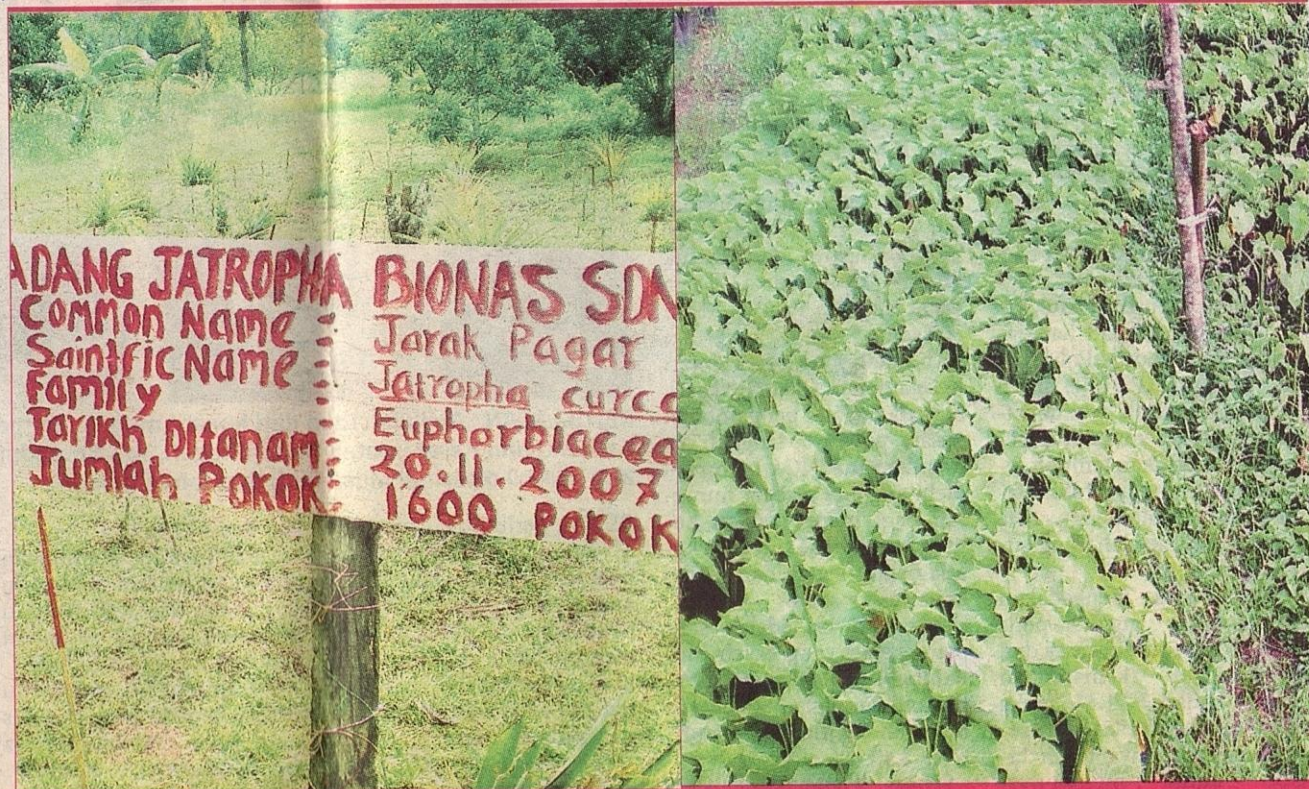 ADANG JATROPHA BIONAS SDN
Common Name : Jarak Pagar
Saintfic Name : Jatropha curca
Family : Euphorbiacea
Tarikh Ditanam : 20.11.2007
Jumlah POKOK : 1600 POKOK